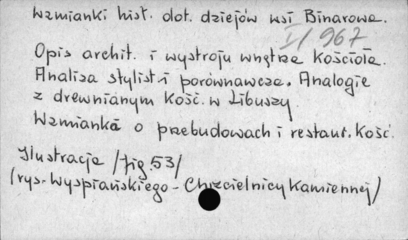 Wzmianki hist. dot. dziejów wsi Binarowa.
I/967
Opis archit. i wystroju wnętrza Kościoła.
Analiza stylist. i porównawcza. Analogie
z drewnianym Kość. w Libuszy
Wzmianka o przebudowach i restaur. Kość.
Ilustracja /fig. 53/
/rys. Wyspiańskiego - Chrzcielnicy Kamiennej/